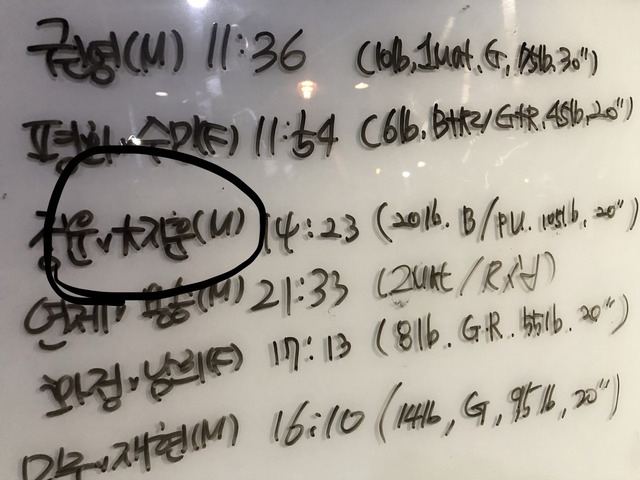 권영(M) 11:36 (10lb, 1mat, G, 75lb, 30")
수민(F) 11:54 (6lb. B+R2/G+R. 45lb, 20")
정운, 大지훈(M) 14:23 (20lb. B/PU. 105lb, 20")
연제, (M) 21:33 (2mat / RX's)
화정, 남희(F) 17:13 (8lb. G.R. 55lb. 20")
민우, 재현(M) 16:10 (14lb, G, 95lb, 20")